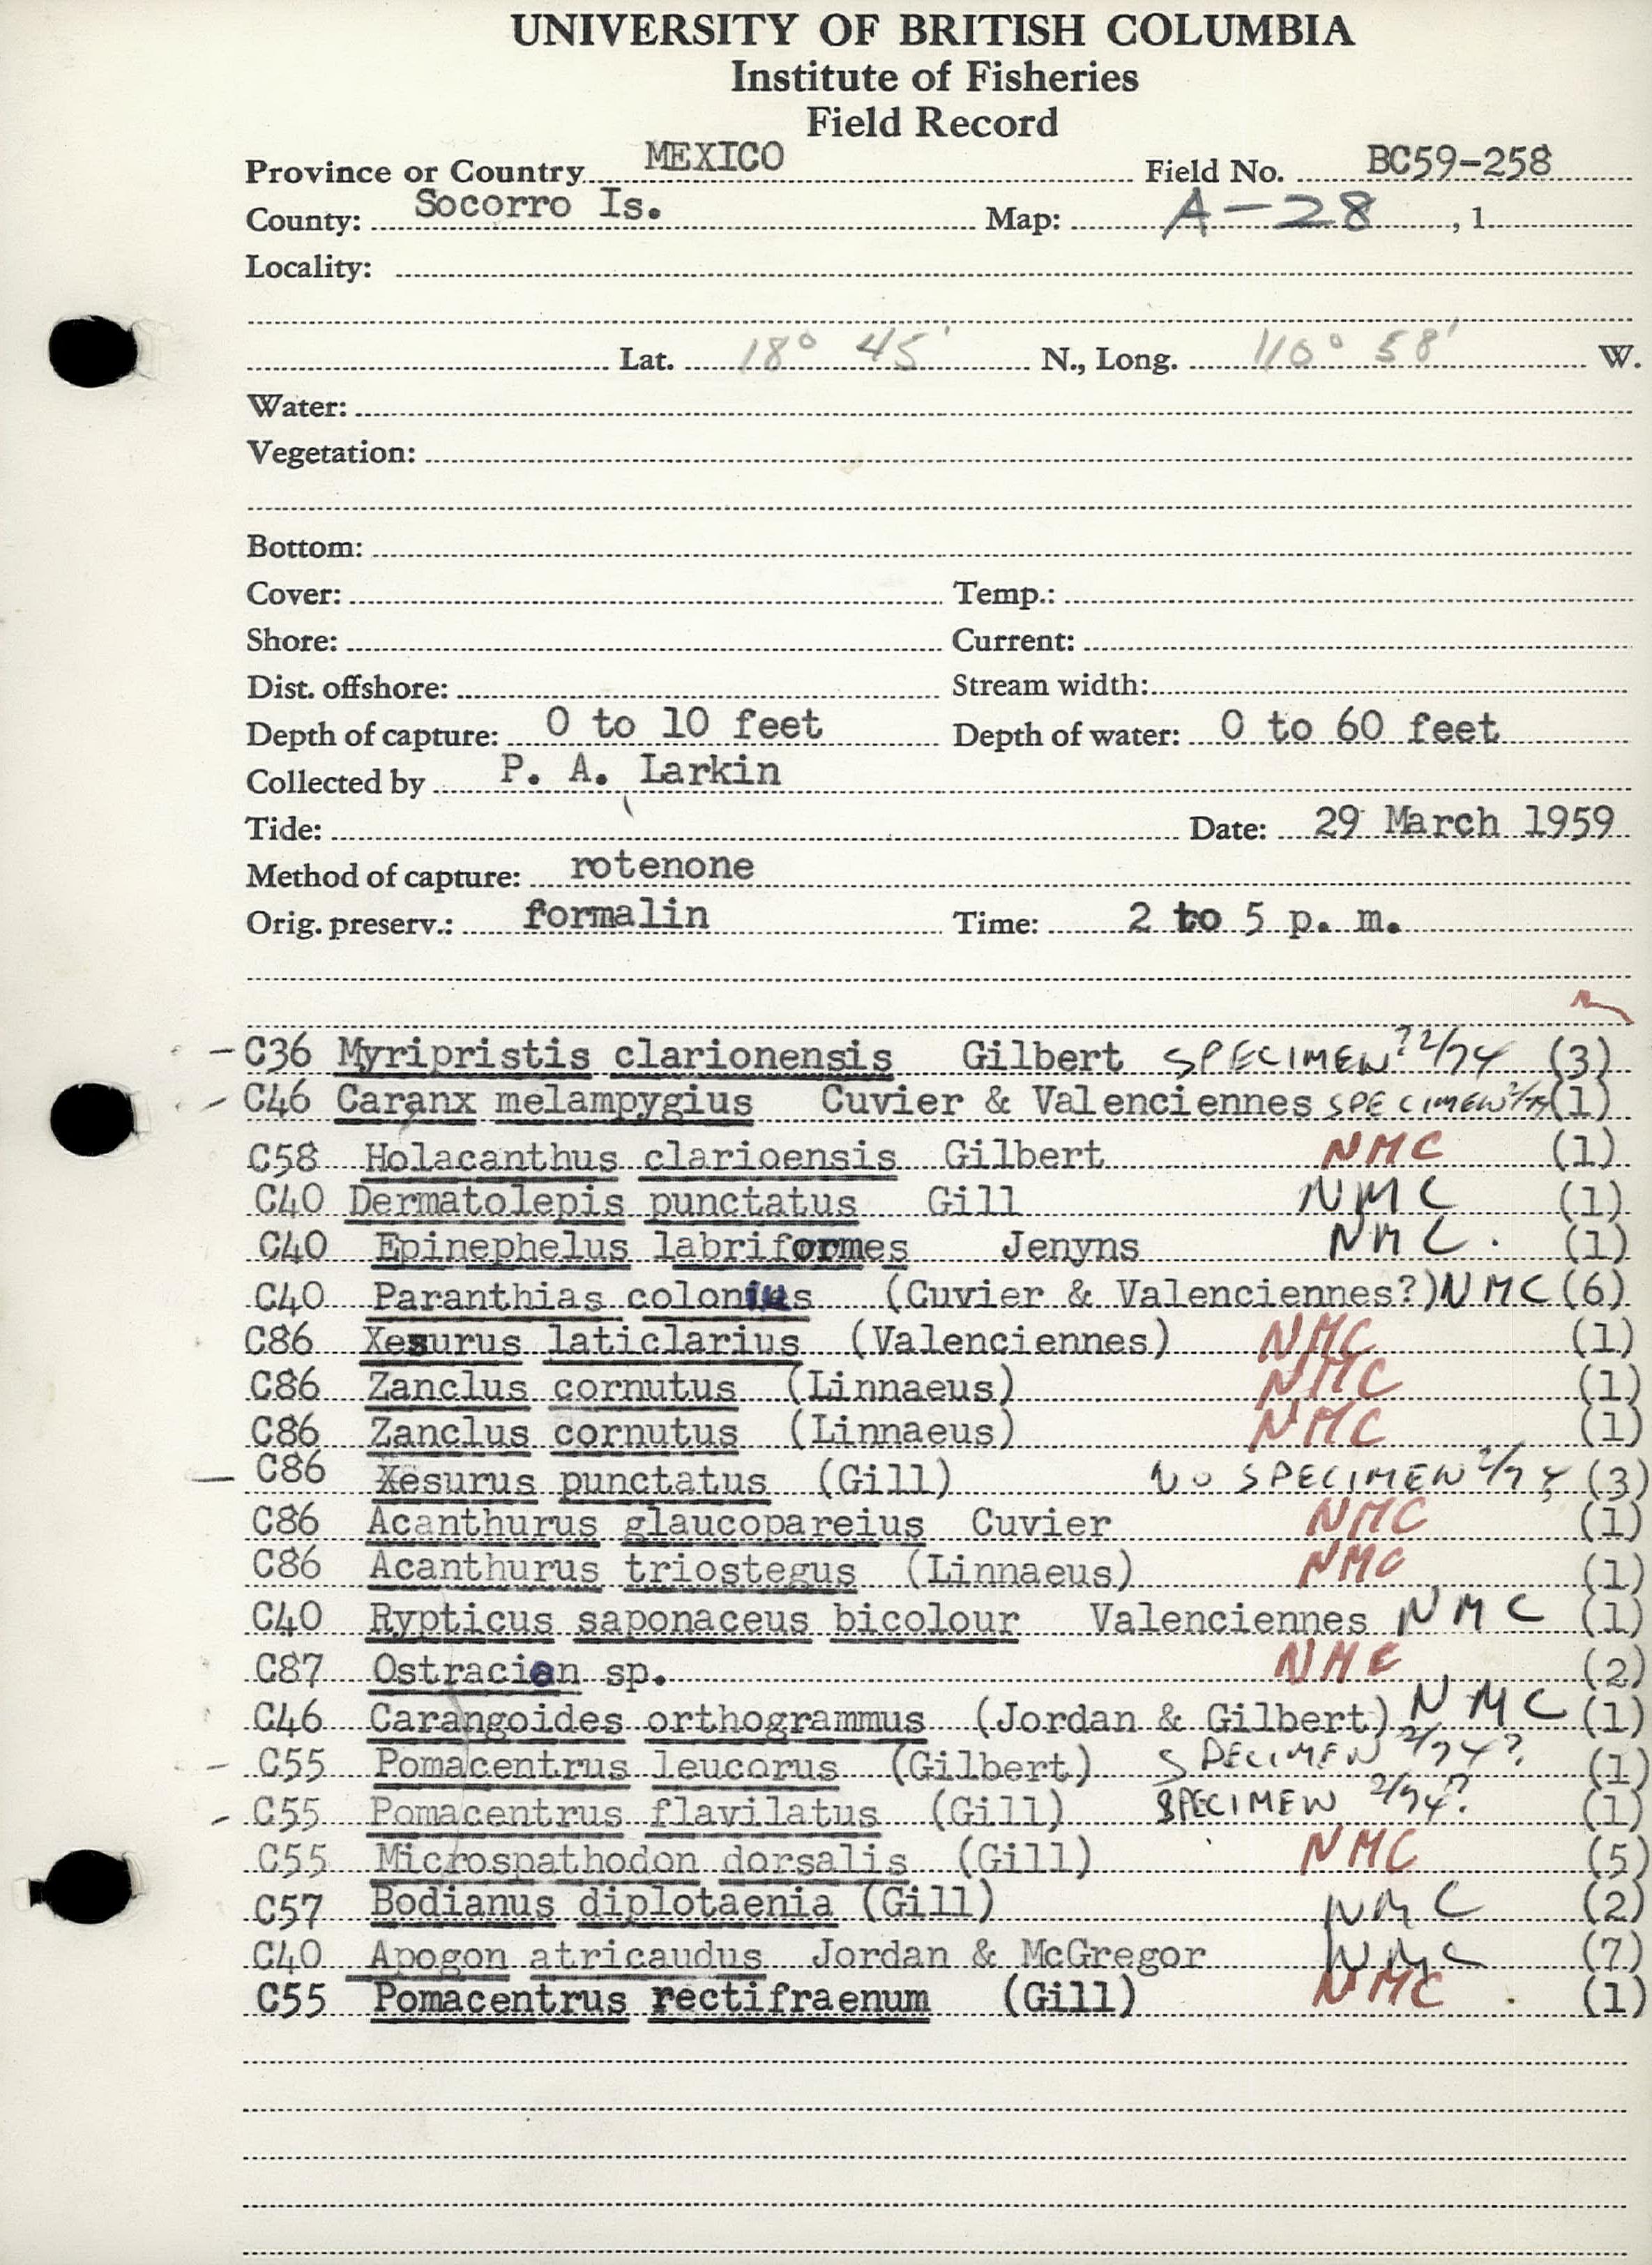 UNIVERSITY OF BRITISH COLUMBIA
Institute of Fisheries
Field Record
Province or Country MEXICO Field No. BC59-258
County: Socorro Is. Map: A-28 , 1
Locality:
Lat. 18° 45' N., Long. 110° 58' W.
Water:
Vegetation:
Bottom:
Cover: Temp.:
Shore: Current:
Dist. offshore: Stream width:
Depth of capture: 0 to 10 feet Depth of water: 0 to 60 feet
Collected by P. A. Larkin
Tide: Date: 29 March 1959
Method of capture: rotenone
Orig. preserv.: formalin Time: 2 to 5 p. m.
-C36 Myripristis clarionensis Gilbert SPECIMEN? 2/74 (3)
- C46 Caranx melampygius Cuvier & Valenciennes SPECIMEN? (1)
C58 Holacanthus clarioensis Gilbert NMC (1)
C40 Dermatolepis punctatus Gill NMC (1)
C40 Epinephelus labriformes Jenyns NMC. (1)
C40 Paranthias colonius (Cuvier & Valenciennes?) NMC (6)
C86 Xesurus laticlarius (Valenciennes) NMC (1)
C86 Zanclus cornutus (Linnaeus) NMC (1)
C86 Zanclus cornutus (Linnaeus) NMC (1)
- C86 Xesurus punctatus (Gill) NO SPECIMEN 2/74 (3)
C86 Acanthurus glaucopareius Cuvier NMC (1)
C86 Acanthurus triostegus (Linnaeus) NMC (1)
C40 Rypticus saponaceus bicolour Valenciennes NMC (1)
C87 Ostracion sp. NMC (2)
C46 Carangoides orthogrammus (Jordan & Gilbert) NMC (1)
- C55 Pomacentrus leucorus (Gilbert) SPECIMEN 2/74? (1)
- C55 Pomacentrus flavilatus (Gill) SPECIMEN 2/74? (1)
C55 Microspathodon dorsalis (Gill) NMC (5)
C57 Bodianus diplotaenia (Gill) NMC (2)
C40 Apogon atricaudus Jordan & McGregor NMC (7)
C55 Pomacentrus rectifraenum (Gill) NMC (1)